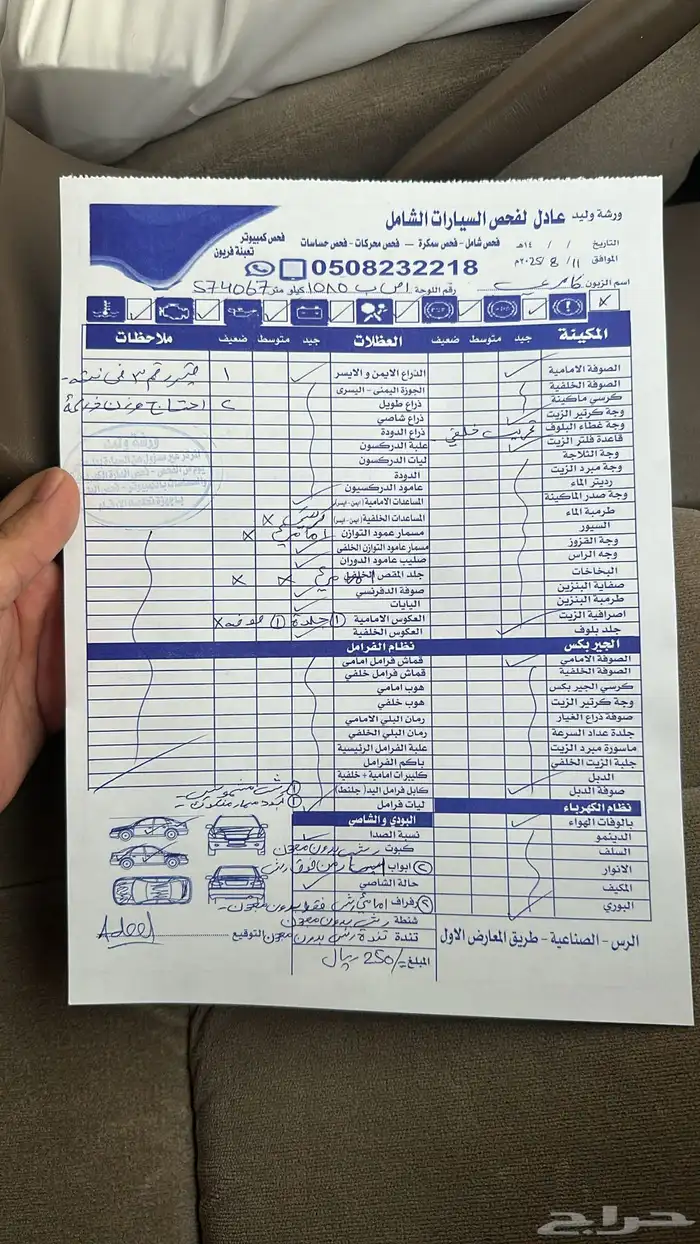 ورشة وليد عادل لفحص السيارات الشامل
فحص شامل - فحص سمكرة - فحص محركات - فحص حساسات
فحص كمبيوتر
تعبئة فريون
التاريخ / / ١٤هـ
الموافق ١١/ 8 /2025م
0508232218
اسم الزبون كامري رقم اللوحة ا ص ب ١٥٨٥ كيلو متر 574067
المكينة جيد متوسط ضعيف
الصوفة الامامية
الصوفة الخلفية
كرسي ماكينة
وجة كرتير الزيت
وجة غطاء البلوف تهريب خلفي
قاعدة فلتر الزيت
وجة الثلاجة
وجة مبرد الزيت
رديتر الماء
وجة صدر الماكينة
طرمبة الماء
السيور
وجة القزوز
وجه الراس
البخاخات
صفاية البنزين
طرمبة البنزين
اصرافية الزيت
جلد بلوف
الجير بكس
الصوفة الامامي
الصوفة الخلفية
كرسي الجير بكس
وجة كرتير الزيت
صوفة ذراع الغيار
جلدة عداد السرعة
ماسورة مبرد الزيت
جلبة الزيت الخلفي
الدبل
صوفة الدبل
نظام الكهرباء
بالوفات الهواء
الدينمو
السلف
الانوار
المكيف
البوري
العضلات جيد متوسط ضعيف
الذراع الايمن و الايسر
الجوزة اليمنى - اليسرى
ذراع طويل
ذراع شاصي
ذراع الدودة
علبة الدركسون
ليات الدركسون
الدودة
عامود الدركسيون
المساعدات الامامية (ايمن - ايسر)
المساعدات الخلفية (ايمن - ايسر) x
مسمار عمود التوازن امامي x
مسمار عامود التوازن الخلفي
صليب عامود الدوران
جلد المقص الخلفي امامي x x
صوفة الدفرنسي
اليايات
العكوس الامامية ① جلدة ① صوفه x
العكوس الخلفية
نظام الفرامل
قماش فرامل امامي
قماش فرامل خلفي
هوب امامي
هوب خلفي
رمان البلي الامامي
رمان البلي الخلفي
علبة الفرامل الرئيسية
باكم الفرامل
كليبرات امامية + خلفية
كابل فرامل اليد (جلنط)
ليات فرامل
البودي و الشاصي
نسبة الصدا
كبوت رش بدون معجون
② ابواب
حالة الشاصي
② رفراف امامي رش فقط بدون معجون
شنطة رش بدون معجون
تندة تندة رش بدون معجون
المبلغ =/250 ريال
ملاحظات
١
٢
ورشة وليد
التوقيع Adeel
الرس - الصناعية - طريق المعارض الاول
حراج